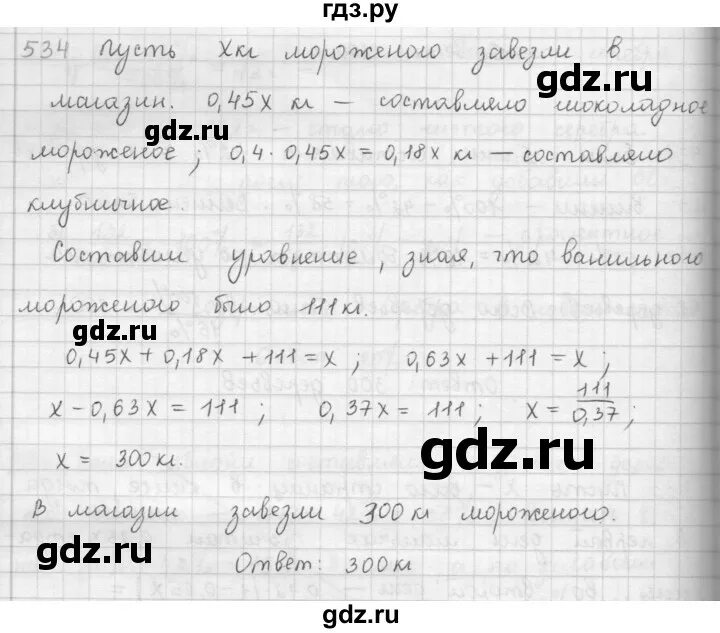 гдз.ру
534 Пусть x кг мороженого завезли в
магазин. 0,45x кг – составляло шоколадное
мороженое; 0,4 · 0,45x = 0,18x кг – составляло
клубничное.
Составим уравнение, зная, что ванильного
мороженого было 111 кг.
0,45x + 0,18x + 111 = x; 0,63x + 111 = x;
x - 0,63x = 111; 0,37x = 111; x = 111/0,37;
x = 300 кг.
В магазин завезли 300 кг мороженого.
Ответ: 300 кг
gdz.ru
gdz.ru
gdz.ru
gdz.ru
gdz.ru
gdz.ru
gdz.ru
gdz.ru